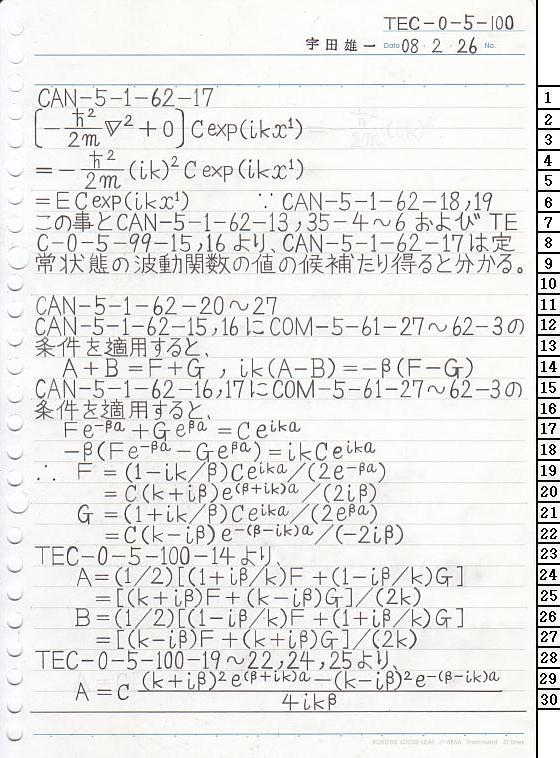 TEC-0-5-100
宇田雄一 Date 08・2・26 No.
CAN-5-1-62-17
[-ħ²/2m ∇²+0] C exp(ikx¹)
=-ħ²/2m (ik)² C exp(ikx¹)
=E C exp(ikx¹) ∵ CAN-5-1-62-18,19
この事とCAN-5-1-62-13,35-4～6 および TE
C-0-5-99-15,16 より、CAN-5-1-62-17は定
常状態の波動関数の値の候補たり得ると分かる。
CAN-5-1-62-20～27
CAN-5-1-62-15,16にCOM-5-61-27～62-3の
条件を適用すると、
A+B=F+G , ik(A-B)=-β(F-G)
CAN-5-1-62-16,17にCOM-5-61-27～62-3の
条件を適用すると、
Fe^{-βa}+Ge^{βa}=Ce^{ika}
-β(Fe^{-βa}-Ge^{βa})=ikCe^{ika}
∴ F=(1-ik/β)Ce^{ika}/(2e^{-βa})
=C(k+iβ)e^{(β+ik)a}/(2iβ)
G=(1+ik/β)Ce^{ika}/(2e^{βa})
=C(k-iβ)e^{-(β-ik)a}/(-2iβ)
TEC-0-5-100-14より、
A=(1/2)[(1+iβ/k)F+(1-iβ/k)G]
=[(k+iβ)F+(k-iβ)G]/(2k)
B=(1/2)[(1-iβ/k)F+(1+iβ/k)G]
=[(k-iβ)F+(k+iβ)G]/(2k)
TEC-0-5-100-19～22,24,25より、
A=C (k+iβ)²e^{(β+ik)a}-(k-iβ)²e^{-(β-ik)a} / 4ikβ
1
2
3
4
5
6
7
8
9
10
11
12
13
14
15
16
17
18
19
20
21
22
23
24
25
26
27
28
29
30